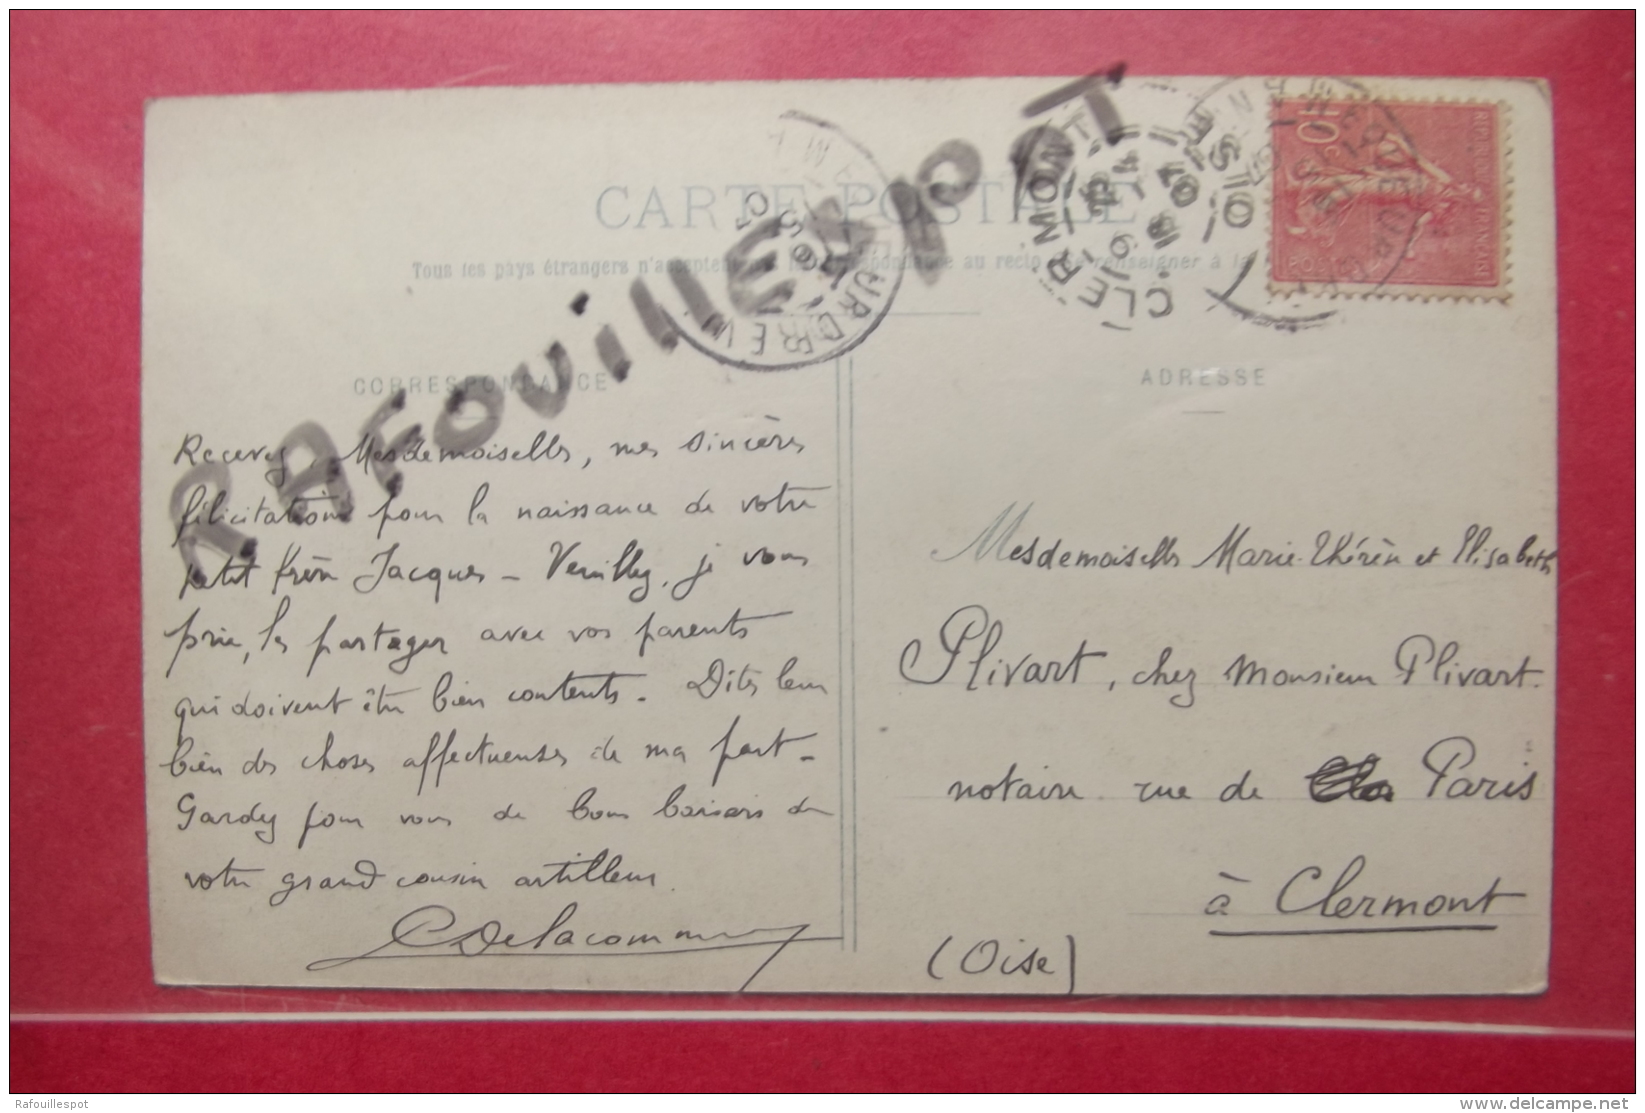 CARTE POSTALE
Tous les pays étrangers n'acceptent pas la correspondance au recto (Se renseigner à la
CORRESPONDANCE
Recevez, Mesdemoiselles, mes sincères
félicitations pour la naissance de votre
petit frère Jacques - Veuillez, je vous
prie, les partager avec vos parents
qui doivent être bien contents. Dites leur
bien des choses affectueuses de ma part -
Gardez pour vous de bons baisers de
votre grand cousin artilleur.
CDelacomm
ADRESSE
Mesdemoiselles Marie-Thérèse et Elisabeth
Plivart, chez Monsieur Plivart.
notaire rue de Paris
à Clermont
(Oise)
CLERMONT
OISE
10c
RafouillESpoT
Rafouillespot
delcampe.net